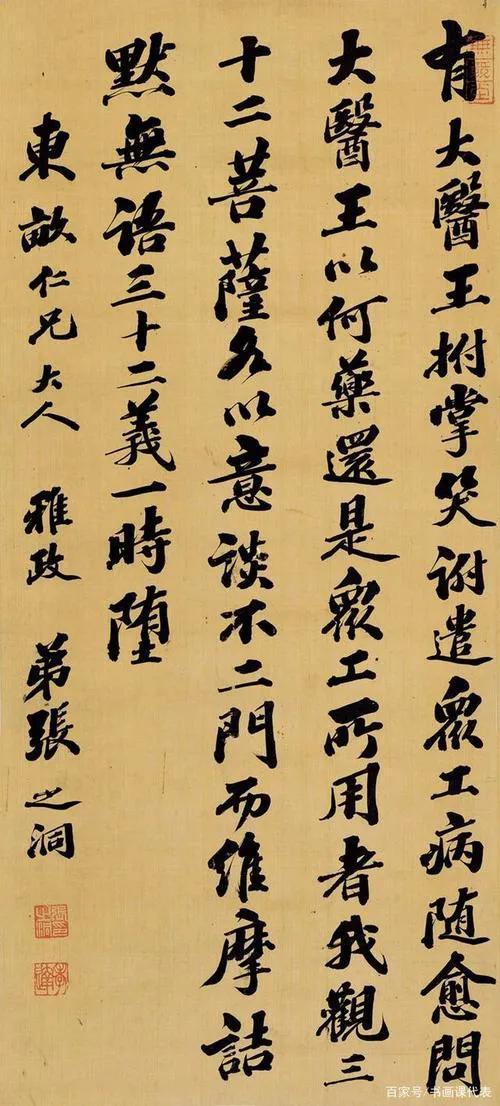 有大醫王拊掌笑謝遣眾工病随愈問
大醫王以何藥還是眾工所用者我觀三
十二菩薩各以意談不二門而維摩詰
默無語三十二義一時堕
東畝仁兄大人 雅政 弟張之洞
百家号/书画课代表